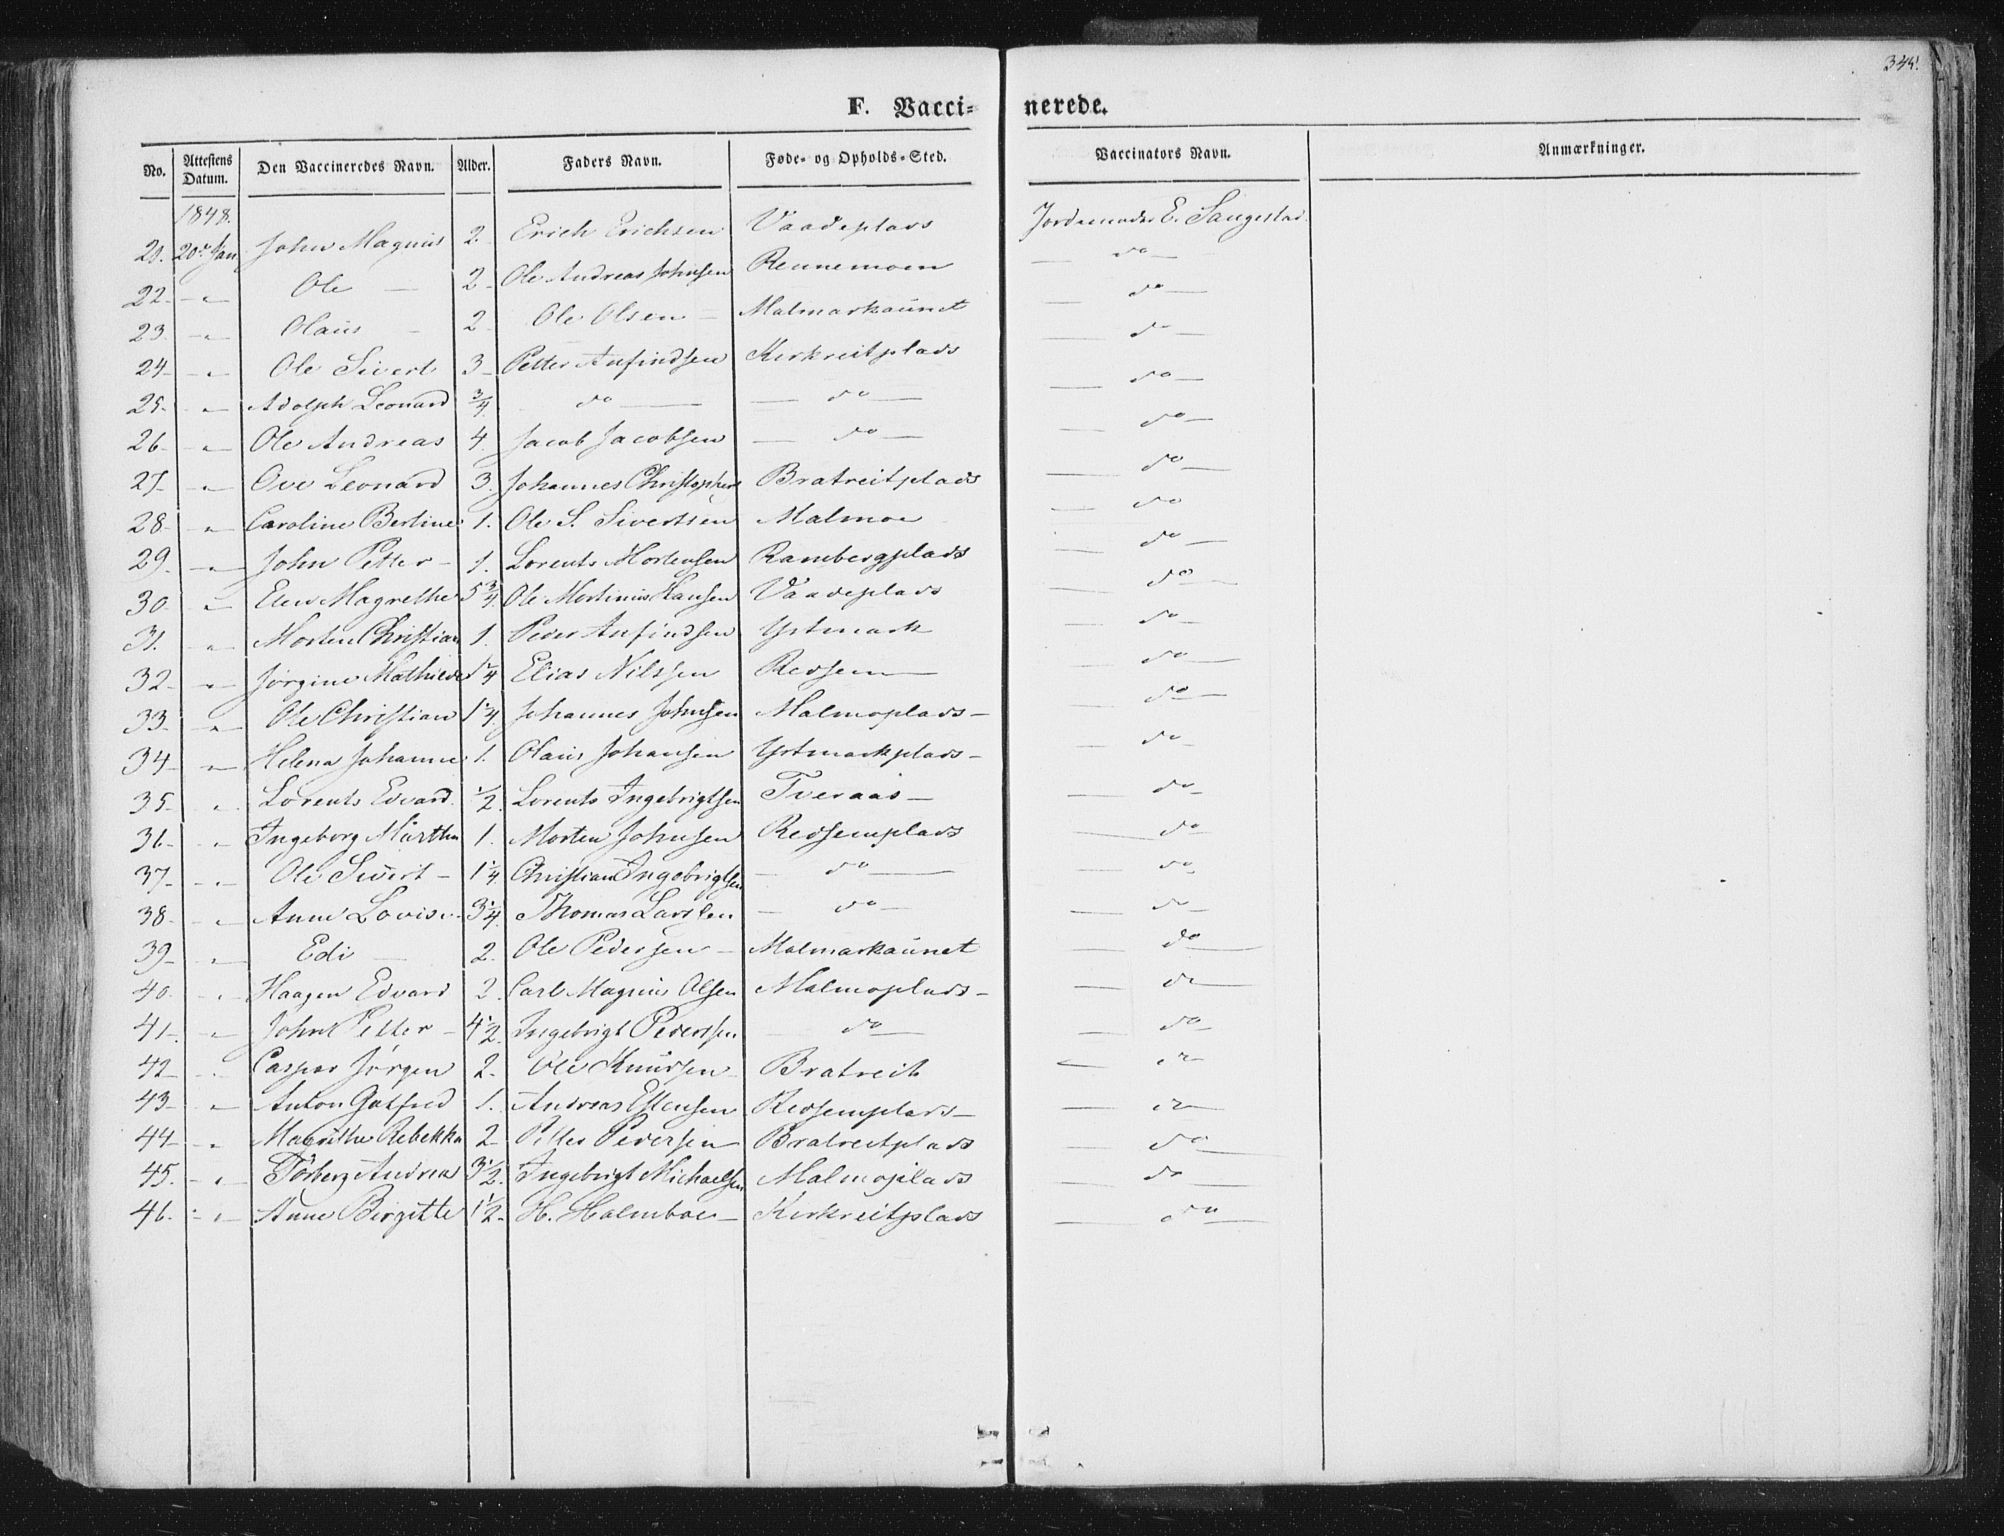 345.
F. Vaccinerede.
No. Attestens Datum. Den Vaccineredes Navn. Alder. Faders Navn. Føde- og Opholds-Sted. Vaccinators Navn. Anmærkninger.
1848.
21. 20de Jan John Magnus 2. Erich Erichsen Vaadeplads Jordemoder E. Saugestad.
22. " Ole — 2 Ole Andreas Johnsen Rennemoen — do —
23. " Olaus — 2 Ole Olsen — Malmarkaunet — do —
24 " Ole Sivert 3 Petter Anfindsen Kirkreitplads — do —
25. " Adolph Leonard 3/4 — do — — do — — do —
26. " Ole Andreas 4 Jacob Jacobsen — do — — do —
27. " Ove Leonard 3. Johannes Christophers Bratreitplads — do —
28. " Caroline Bertine 1. Ole S. Sivertsen Malmoe — do
29. " John Petter — 1. Lorents Mortensen Rambergplads — do —
30. " Elen Magrethe 5 3/4 Ole Mortinus Hansen Vaadeplads — do —
31. " Morten Christian 1. Peder Anfindsen Ystmark — do —
32 " Jørgine Mathilde 1 1/4 Elias Nilssen Redsem — do —
33 " Ole Christian 1 1/4 Johannes Johnsen Malmoplads — — do —
34 " Helena Johanne 1. Olaus Johansen Ystmarkplads — — do —
35 " Lorents Edvard 1/2 Lorents Ingebrigtsen Tveraas — — do —
36 " Ingeborg Martha 1. Morten Johnsen Redsemplads — do —
37 " Ole Sivert — 1 1/4 Christian Ingebrigtsen — do — — do —
38 " Anne Lovise 3 1/4 Thomas Larssen — do — — do —
39 " Edi — 2. Ole Pedersen — Malmarkaunet — do —
40 " Haagen Edvard 2. Carl Magnus Olsen Malmoplads — — do —
41. " John Petter — 4 1/2 Ingebrigt Pederssen — do — — do —
42 " Casper Jørgen 2. Ole Knudsen Bratreit — do —
43 " Anton Gotfred 1. Andreas Estensen Redsemplads — — do —
44 " Magrethe Rebekka 2 Petter Pedersen Bratreitplads — do —
45. " Torberg Andrea 3 1/2. Ingebrigt Michaelsen Malmoplads — do —
46. " Anne Birgitte 1 1/2 H. Holmboe — Kirkreitplads — do —